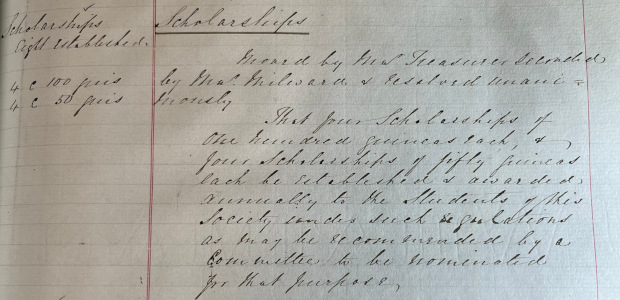 Scholarships
Eight established.
4 @ 100 gns
4 @ 50 gns
Scholarships
Moved by Mr. Treasurer seconded
by Mr. Milward & resolved unani=
mously
That four Scholarships of
One hundred guineas each, &
four Scholarships of fifty guineas
each be established & awarded
annually to the Students of this
Society under such regulations
as may be recommended by a
Committee to be nominated
for that purpose,